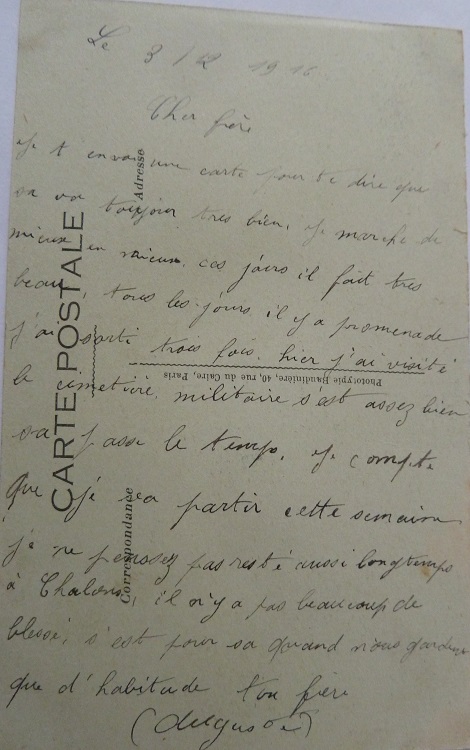 Le 3/12 1916
Cher frère
Je t envoi une carte pour te dire que
sa va toujour tres bien, je marche de
mieux en mieux. ces jours il fait tres
beau, tous les jours il y a promenade
j'ai sorti trois fois. hier j'ai visité
le cimetière militaire s'est assez bien
sa passe le temps. je compte
que je va partir cette semaine
je ne pensez pas resté aussi longtemps
à Chalons, il n'y a pas beaucoup de
blessé, s'est pour sa quand nous gardent
que d'habitude ton frère
(Auguste)
CARTE POSTALE
Correspondance
Adresse
Phototypie Baudinière, 40, rue du Caire, Paris